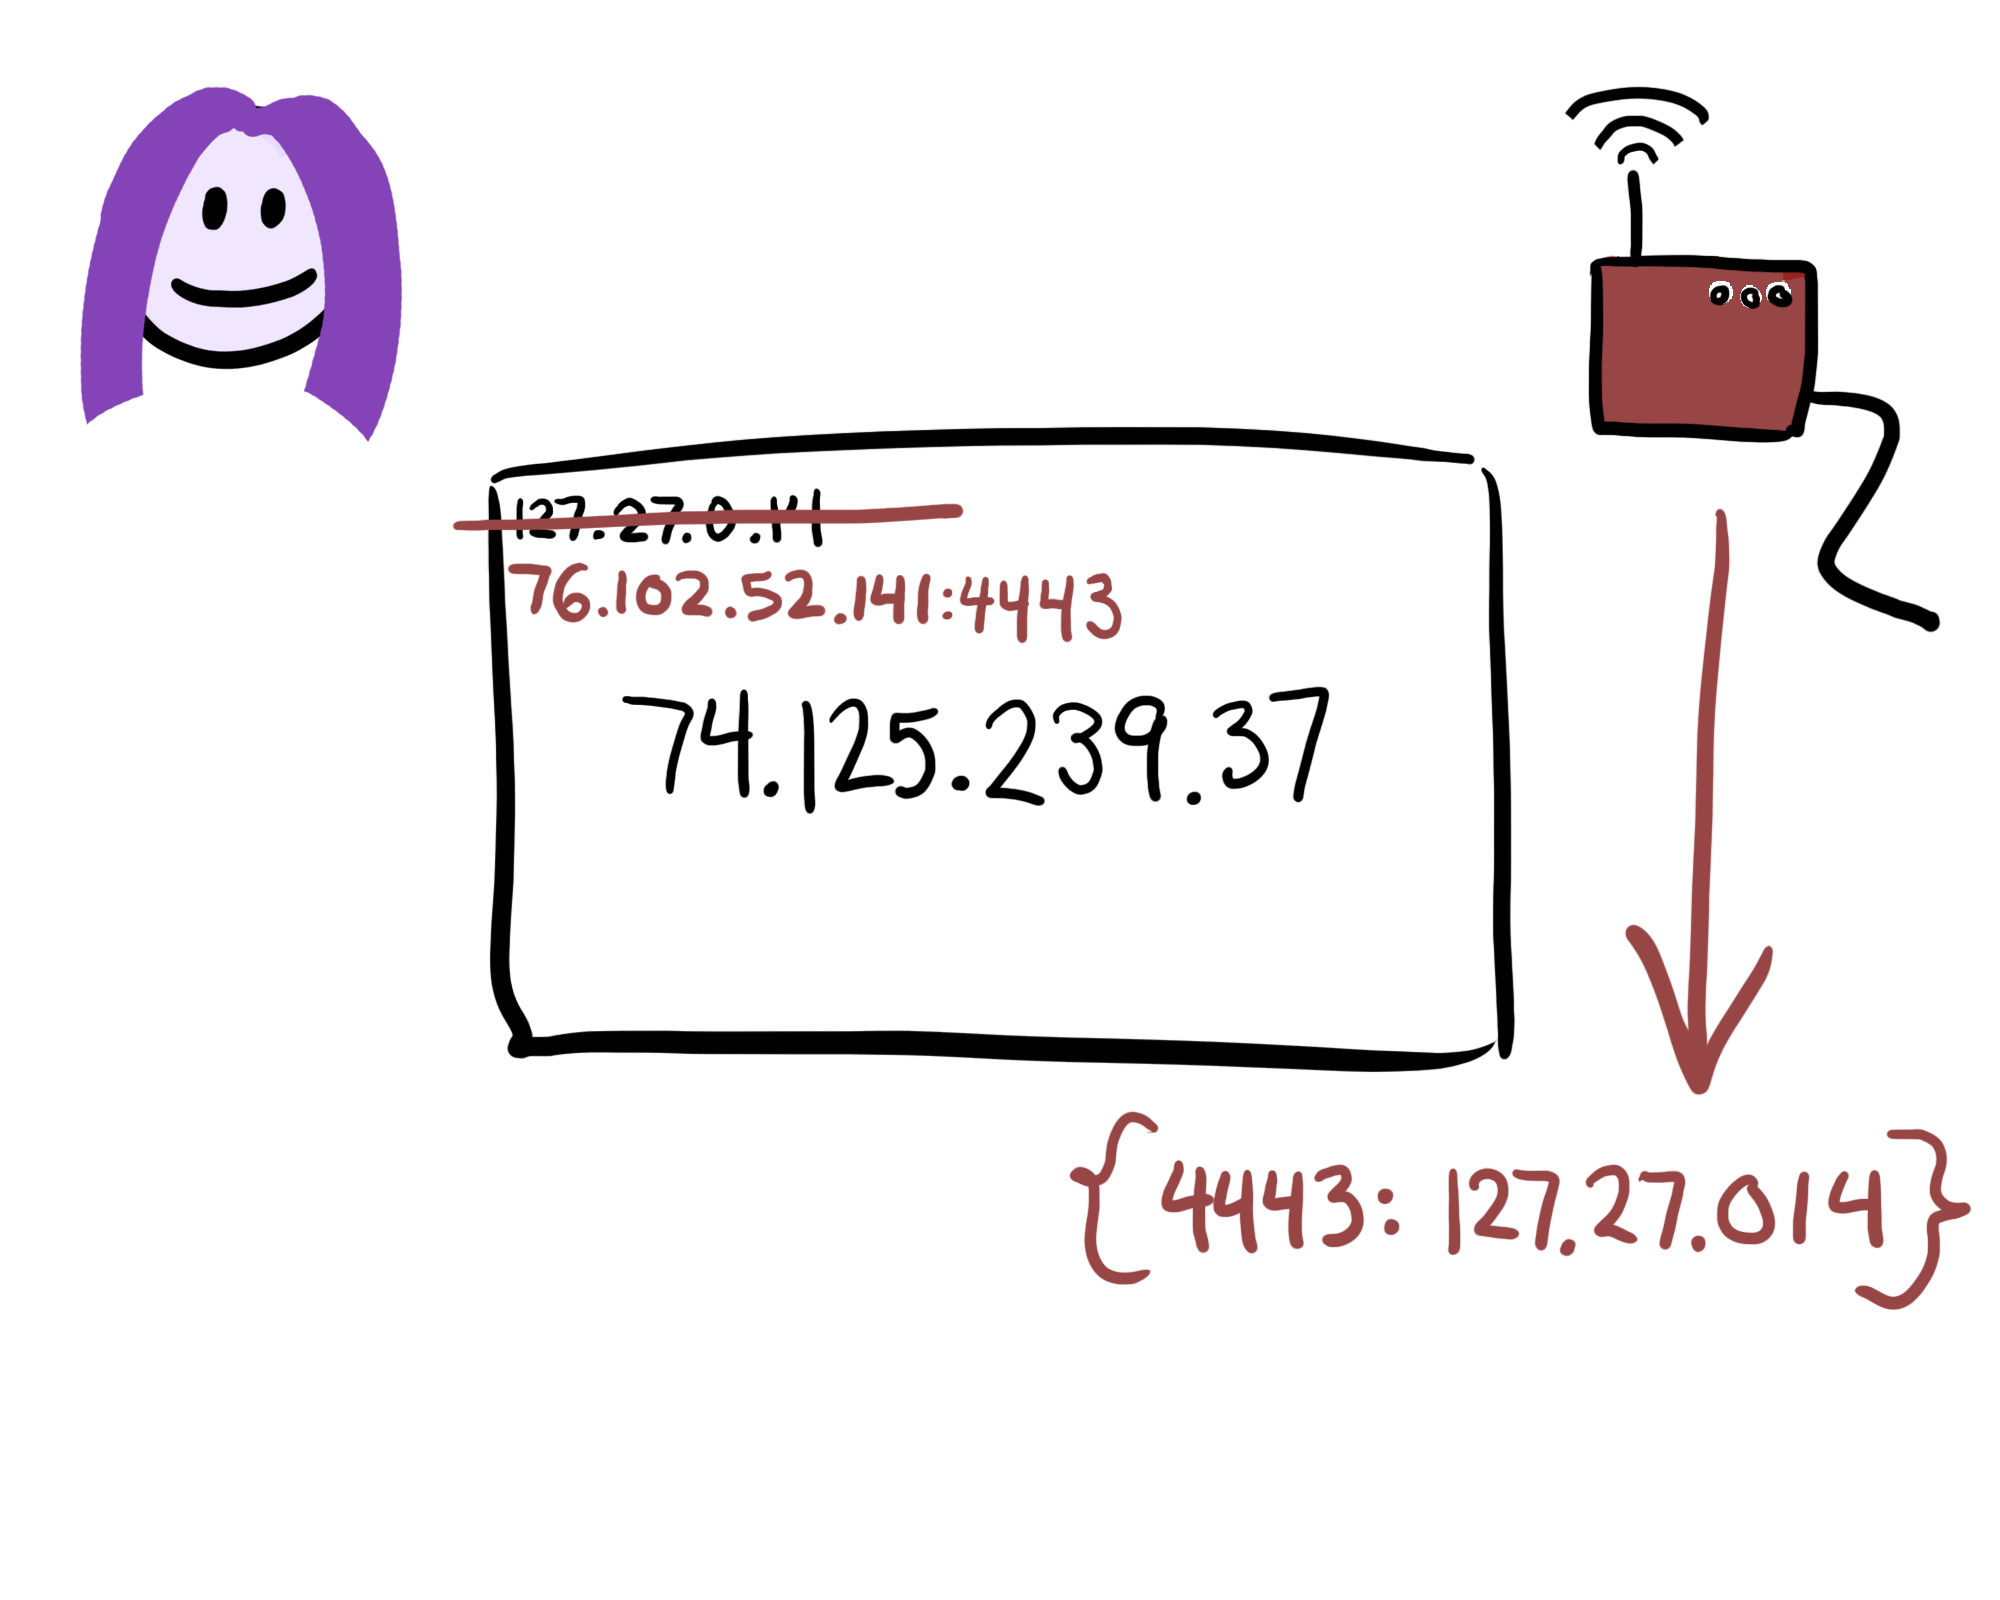 127.27.0.141
76.102.52.141:4443
74.125.239.37
{4443: 127.27.014}